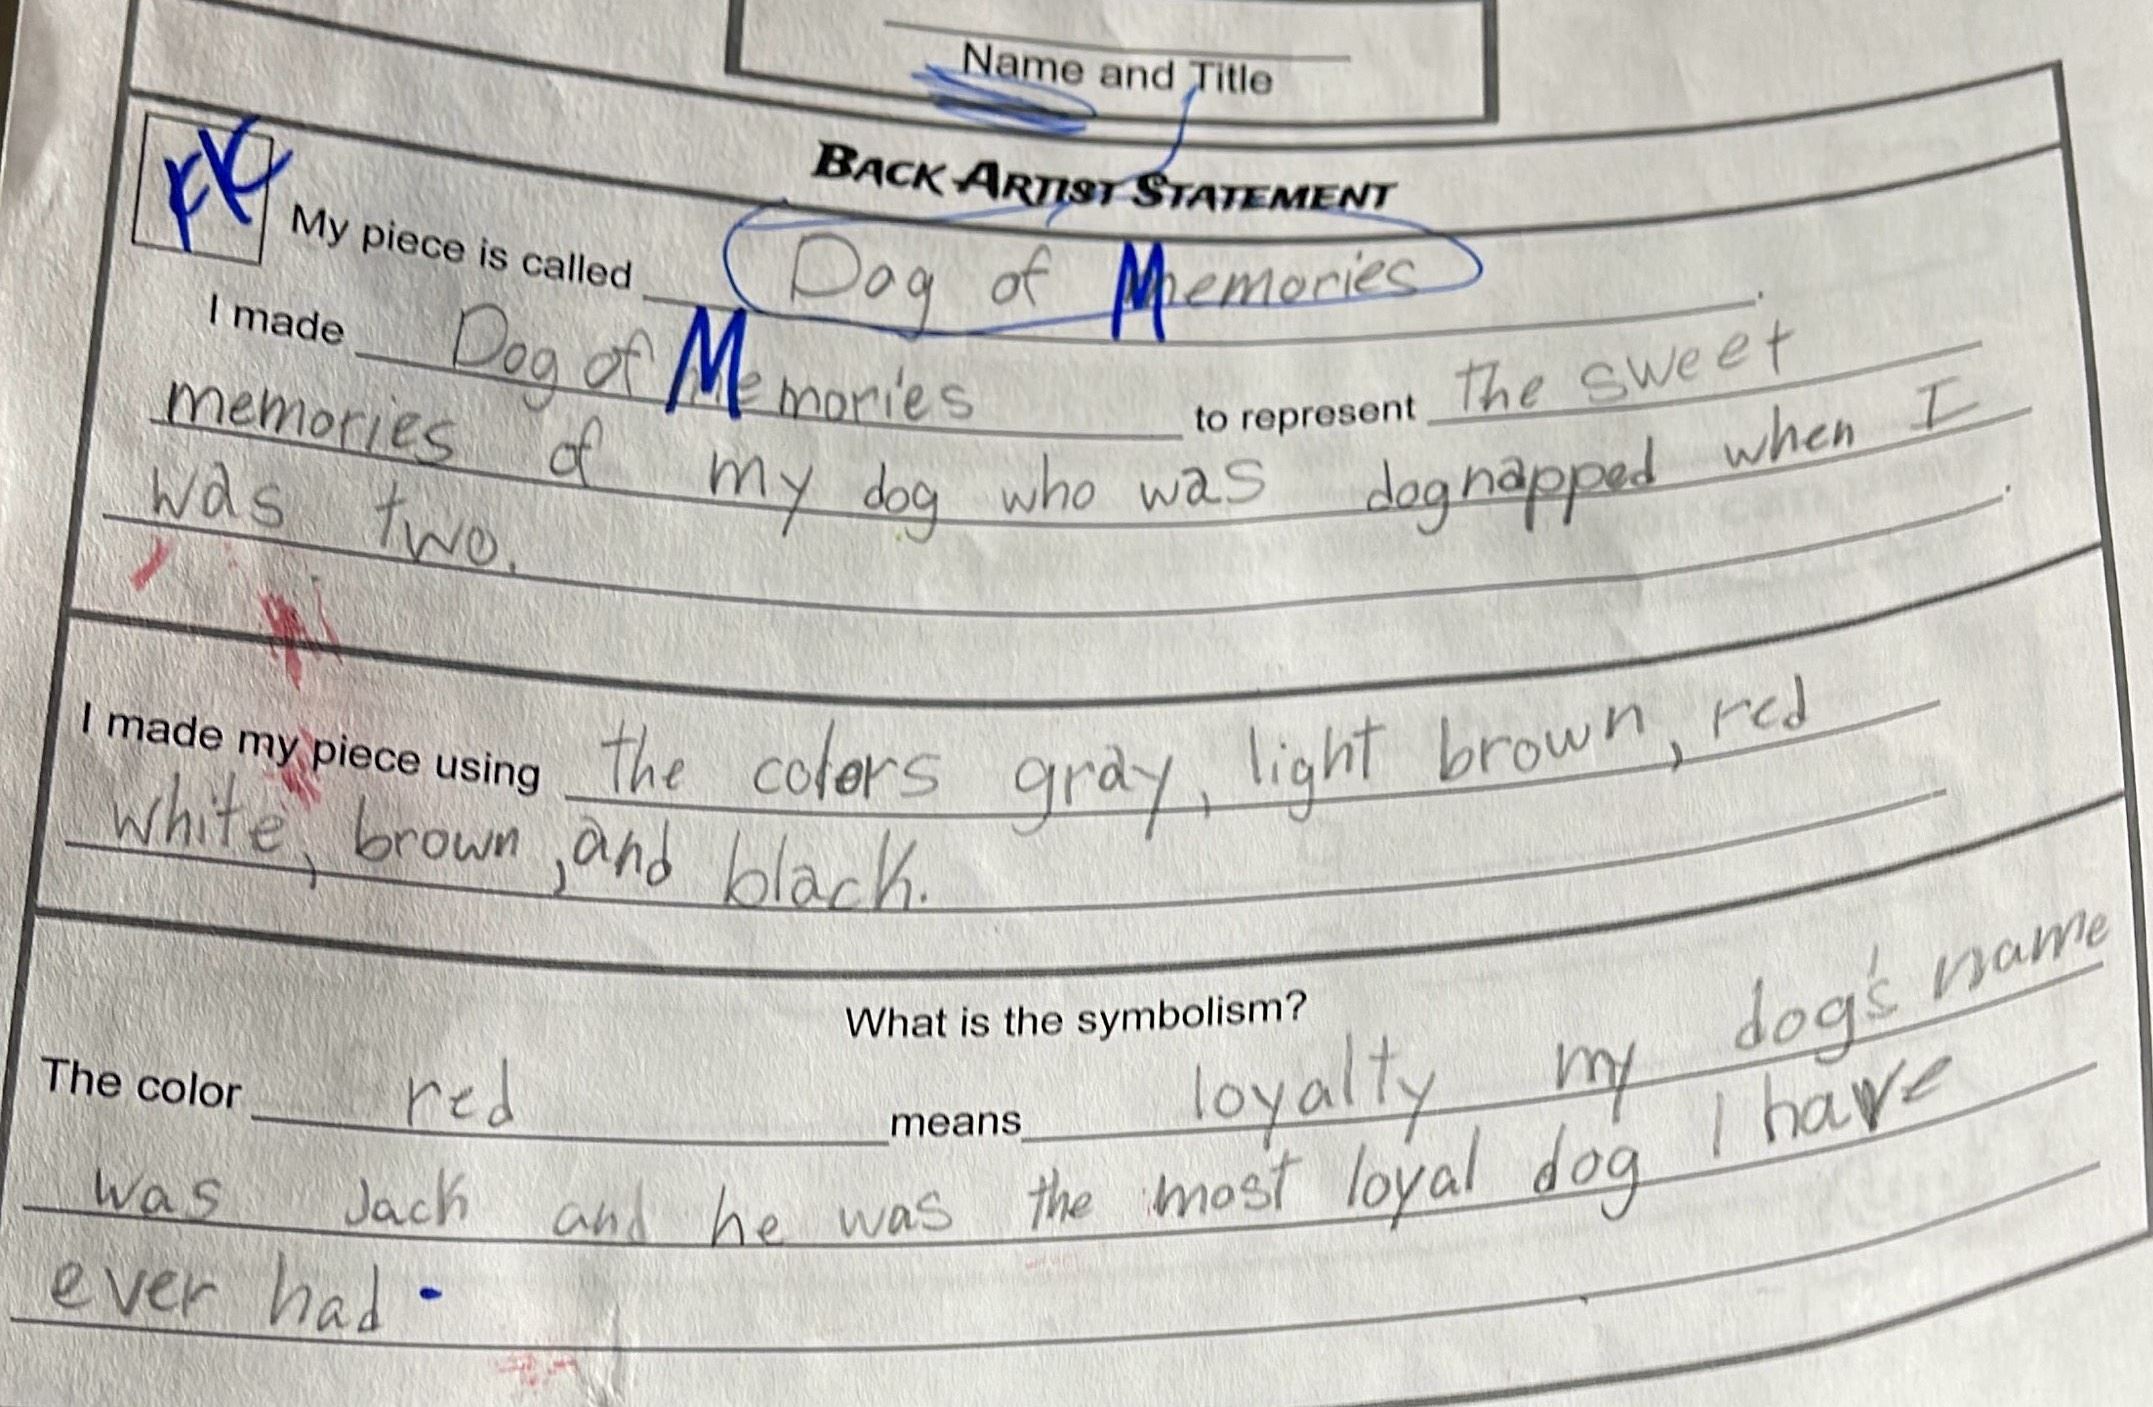 Name and Title
BACK ARTIST STATEMENT
My piece is called Dog of Memories.
I made Dog of Memories to represent the sweet
memories of my dog who was dognapped when I
was two.
I made my piece using the colors gray, light brown, red
white, brown, and black.
What is the symbolism?
The color red means loyalty my dog's name
was Jack and he was the most loyal dog I have
ever had.